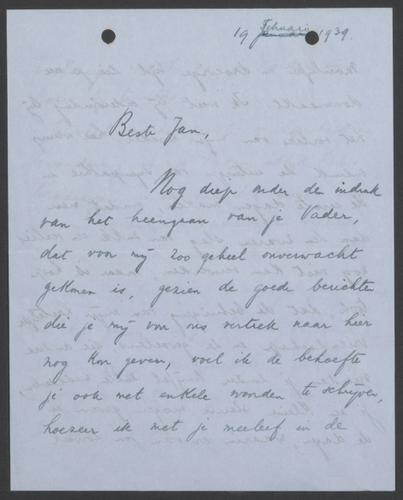 19 Februari 1939.
Beste Jan,
Nog diep onder de indruk
van het heengaan van je Vader,
dat voor mij zoo geheel onverwacht
gekomen is, gezien de goede berichten
die je mij voor ons vertrek naar hier
nog kon geven, voel ik de behoefte
je ook met enkele woorden te schrijven,
hoezeer ik met je meeleef in de